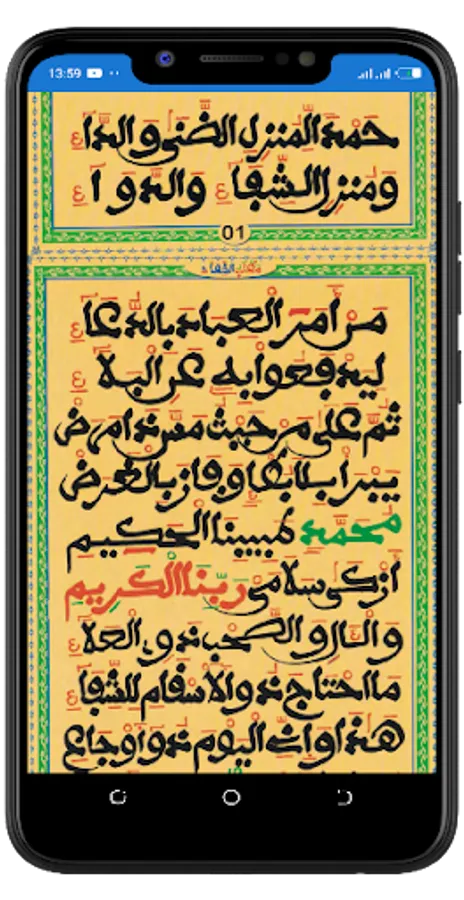 13:59
حمدا لمنزل الضنى والداء
ومنزل الشفاء والدواء
01
مطلب الشفاء
من أمر العباد بالدعاء
ليدفعوا به عن البلاء
ثم على من حيث مس ذا مرض
يبرا بلا بقا وفاز بالغرض
محمد طبيبنا الحكيم
ازكى سلامي ربنا الكريم
والال والصحب ذوي العلاء
ما احتاج ذو الاسقام للشفاء
هذا وانى اليوم ذو اوجاع